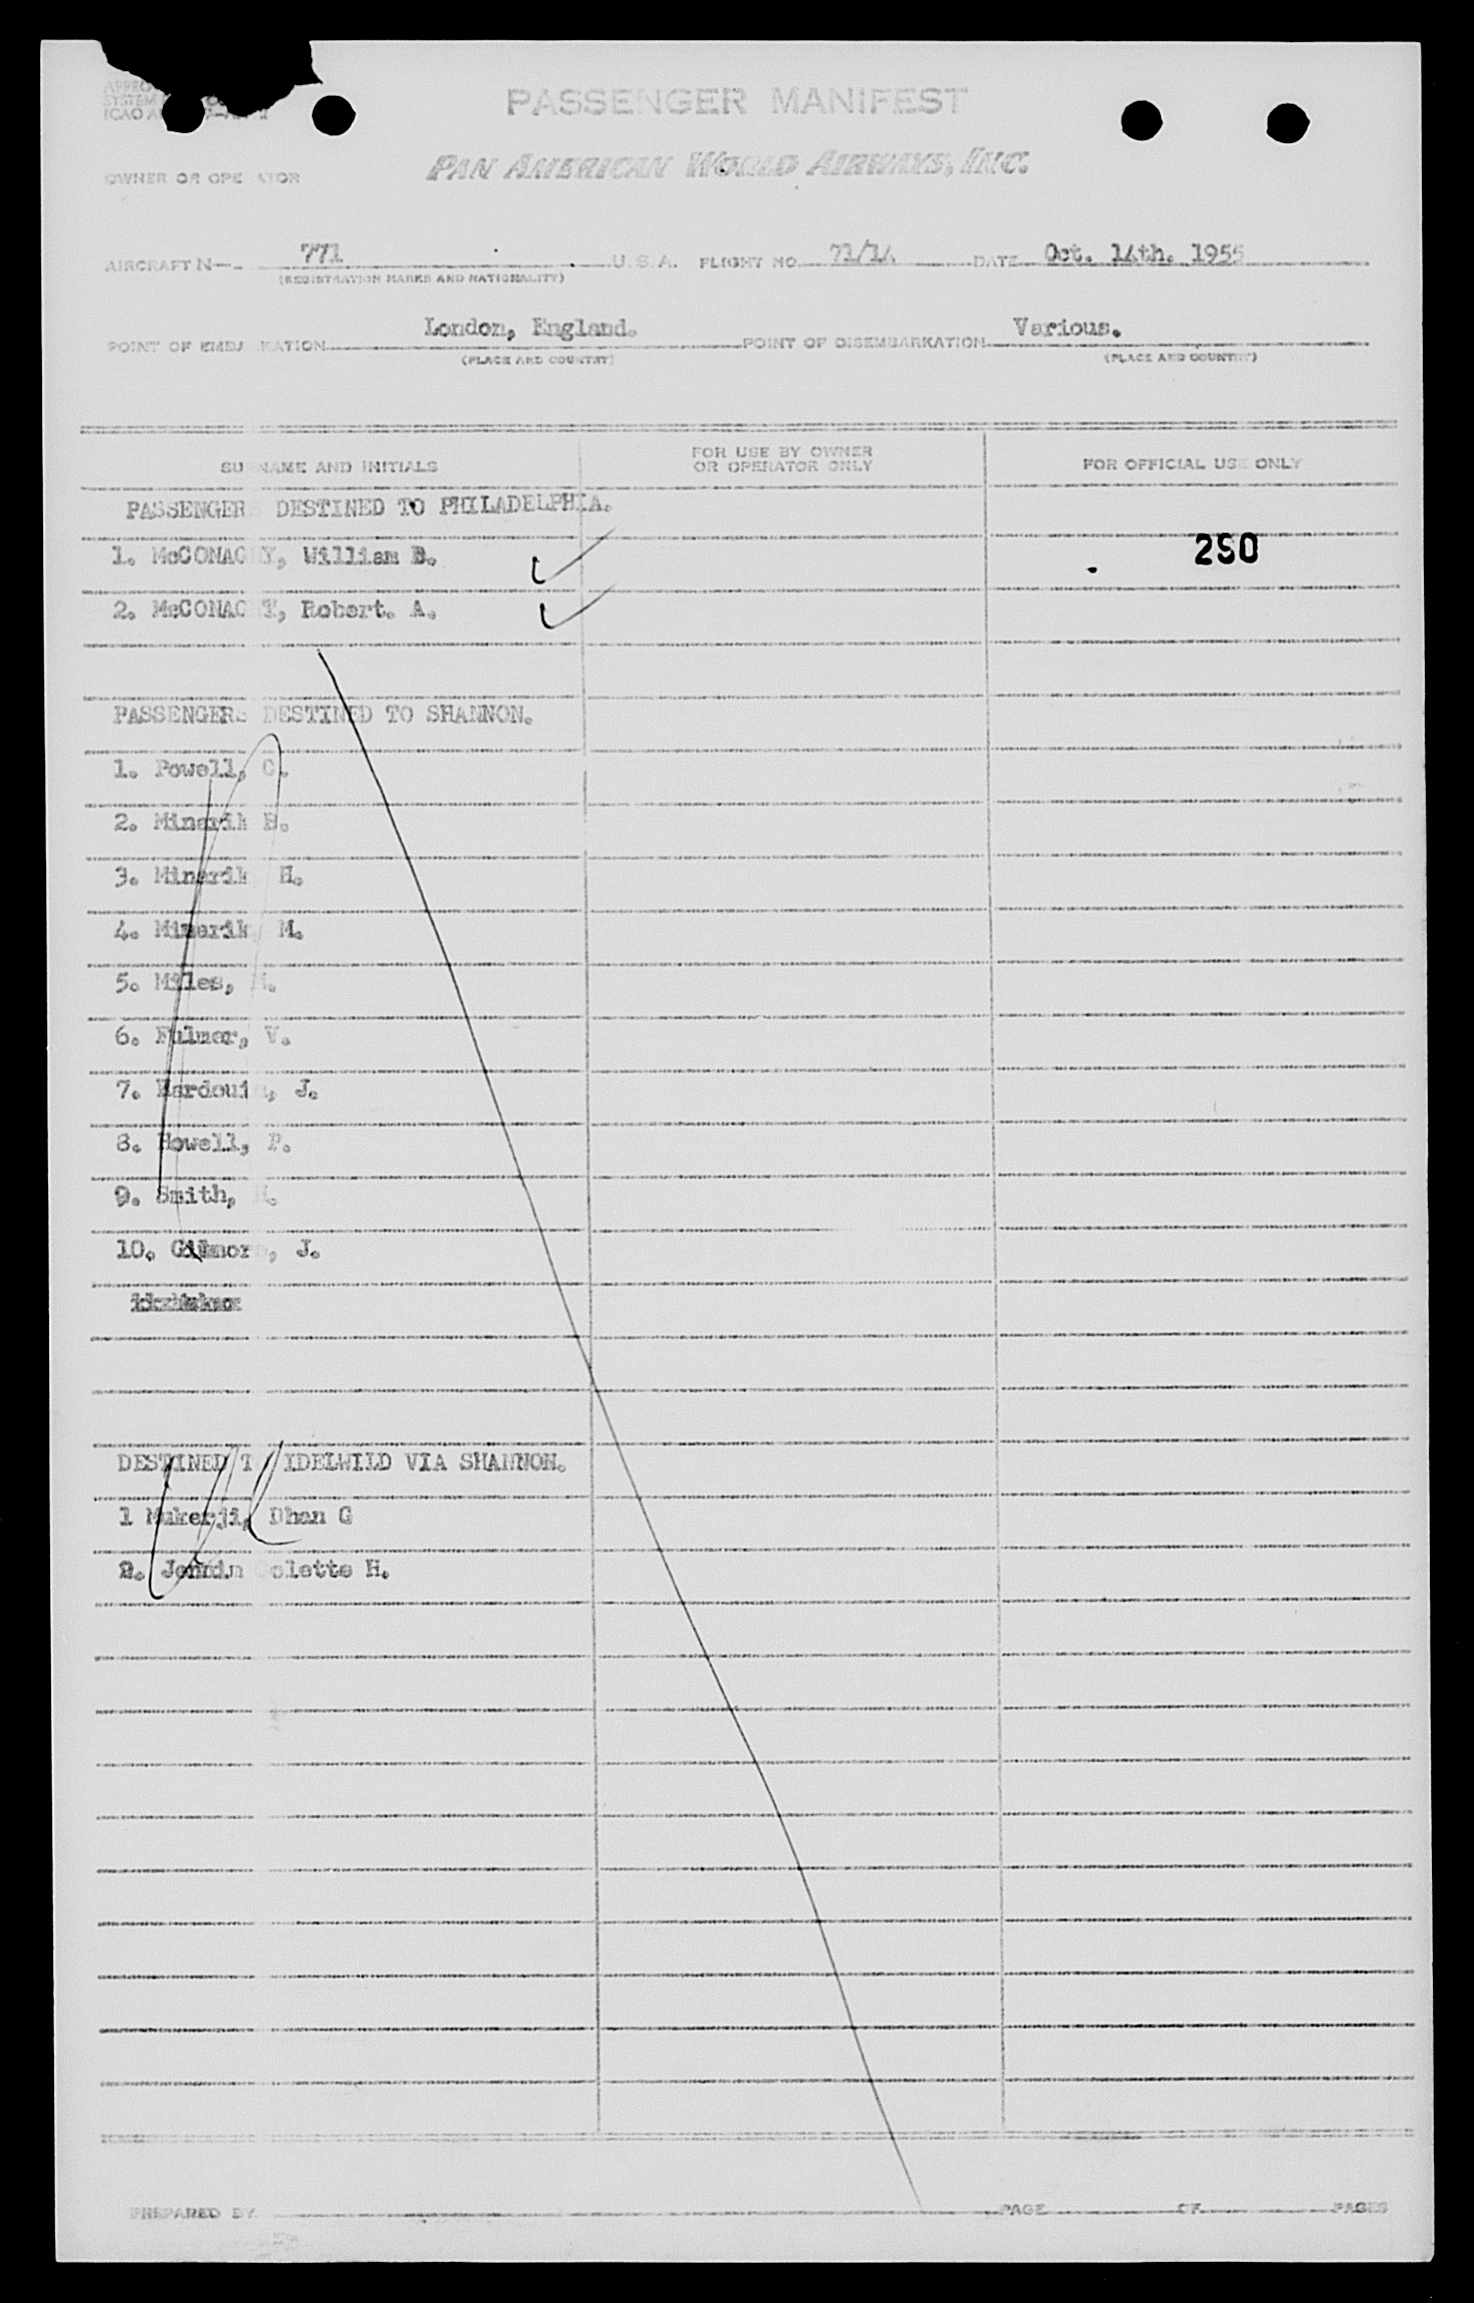 PASSENGER MANIFEST
OWNER OR OPE ATOR
PAN AMERICAN WORLD AIRWAYS, INC.
AIRCRAFT N— 771 U.S.A. FLIGHT NO. 71/14 DATE Oct. 14th. 1955
(REGISTRATION MARKS AND NATIONALITY)
POINT OF EMBA KATION London, England. POINT OF DISEMBARKATION Various.
(PLACE AND COUNTRY) (PLACE AND COUNTRY)
SU NAME AND INITIALS
FOR USE BY OWNER
OR OPERATOR ONLY
FOR OFFICIAL USE ONLY
PASSENGER DESTINED TO PHILADELPHIA.
1. McCONAC Y, William B.
250
2. McCONAC Y, Robert. A.
PASSENGERS DESTINED TO SHANNON.
1. Powell, C.
2. Minarik B.
3. Minarik H.
4. Minarik M.
5. Miles,
6. Fulmer, V.
7. Hardoui , J.
8. Howell, P.
9. Smith,
10. Gilmor , J.
DESTINED T IDELWILD VIA SHANNON.
1 Mukerji, Dhan G
2. olette H.
PREPARED BY PAGE OF PAGES